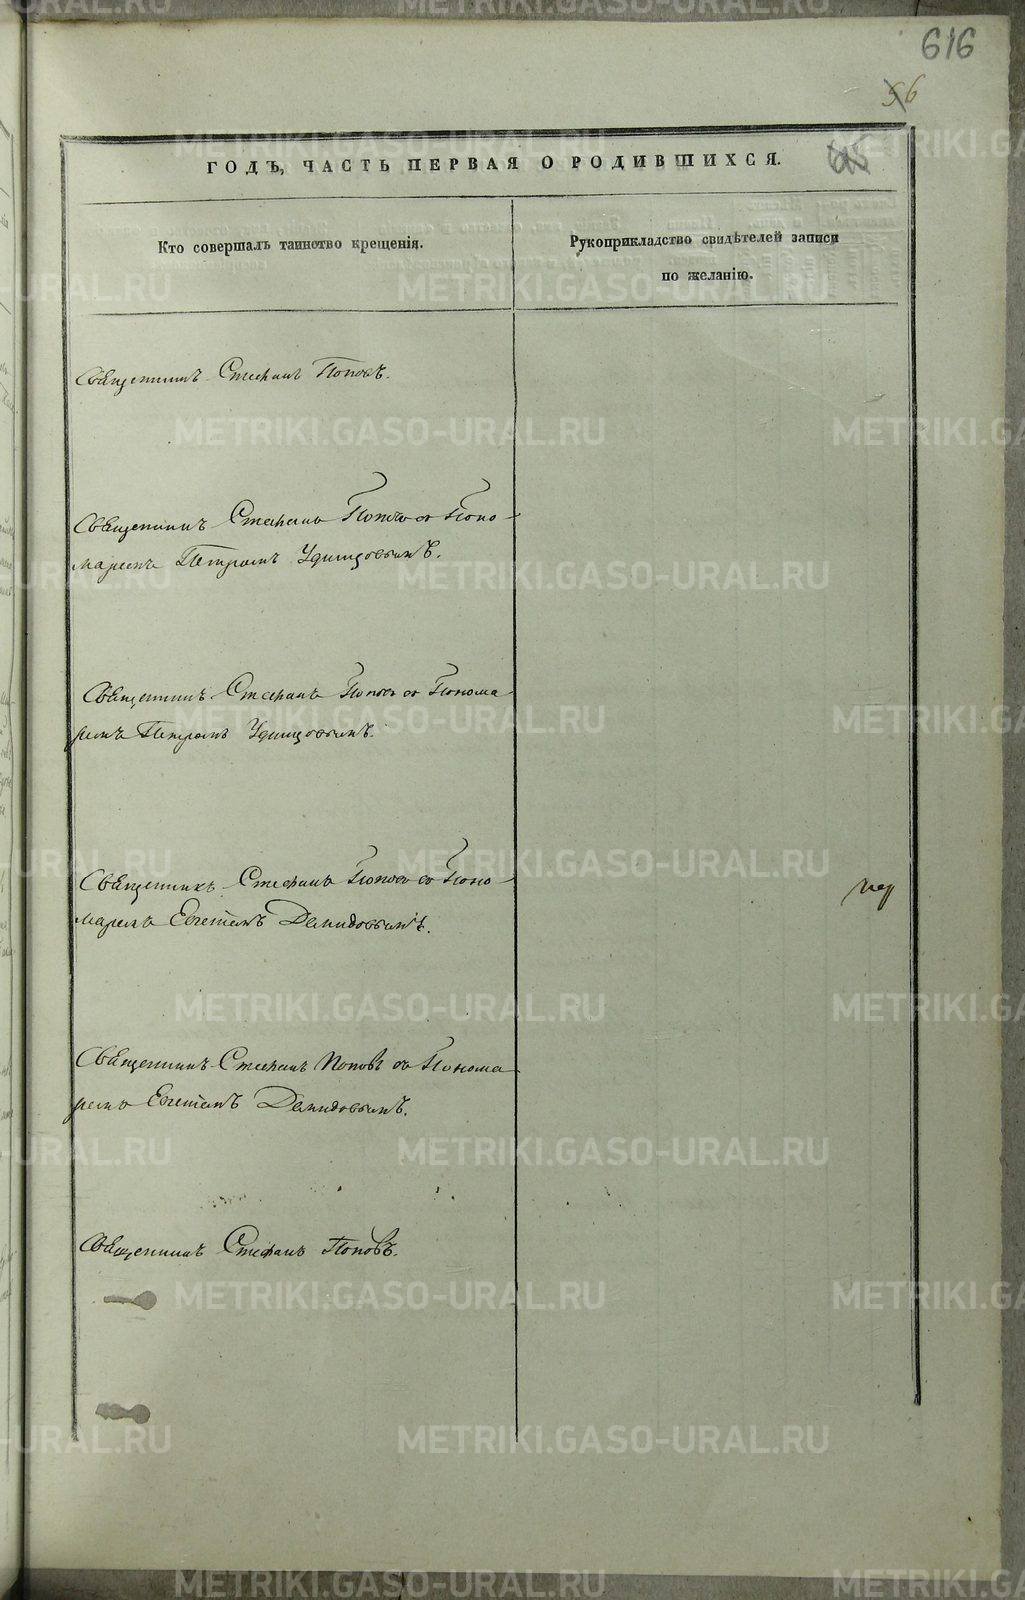 616
56
ГОДЪ, ЧАСТЬ ПЕРВАЯ О РОДИВШИХСЯ.
Кто совершалъ таинство крещенія.
Рукоприкладство свидѣтелей записи
по желанію.
Священникъ Стефанъ Поповъ.
Священникъ Стефанъ Поповъ съ Поно-
маремъ Петромъ Удинцовымъ.
Священникъ Стефанъ Поповъ съ Понома
ремъ Петромъ Удинцовымъ.
Священникъ Стефанъ Поповъ съ Поно-
маремъ Евгеніемъ Демидовымъ.
Священникъ Стефанъ Поповъ съ Понома
ремъ Евгеніемъ Демидовымъ.
Священникъ Стефанъ Поповъ.
METRIKI.GASO-URAL.RU